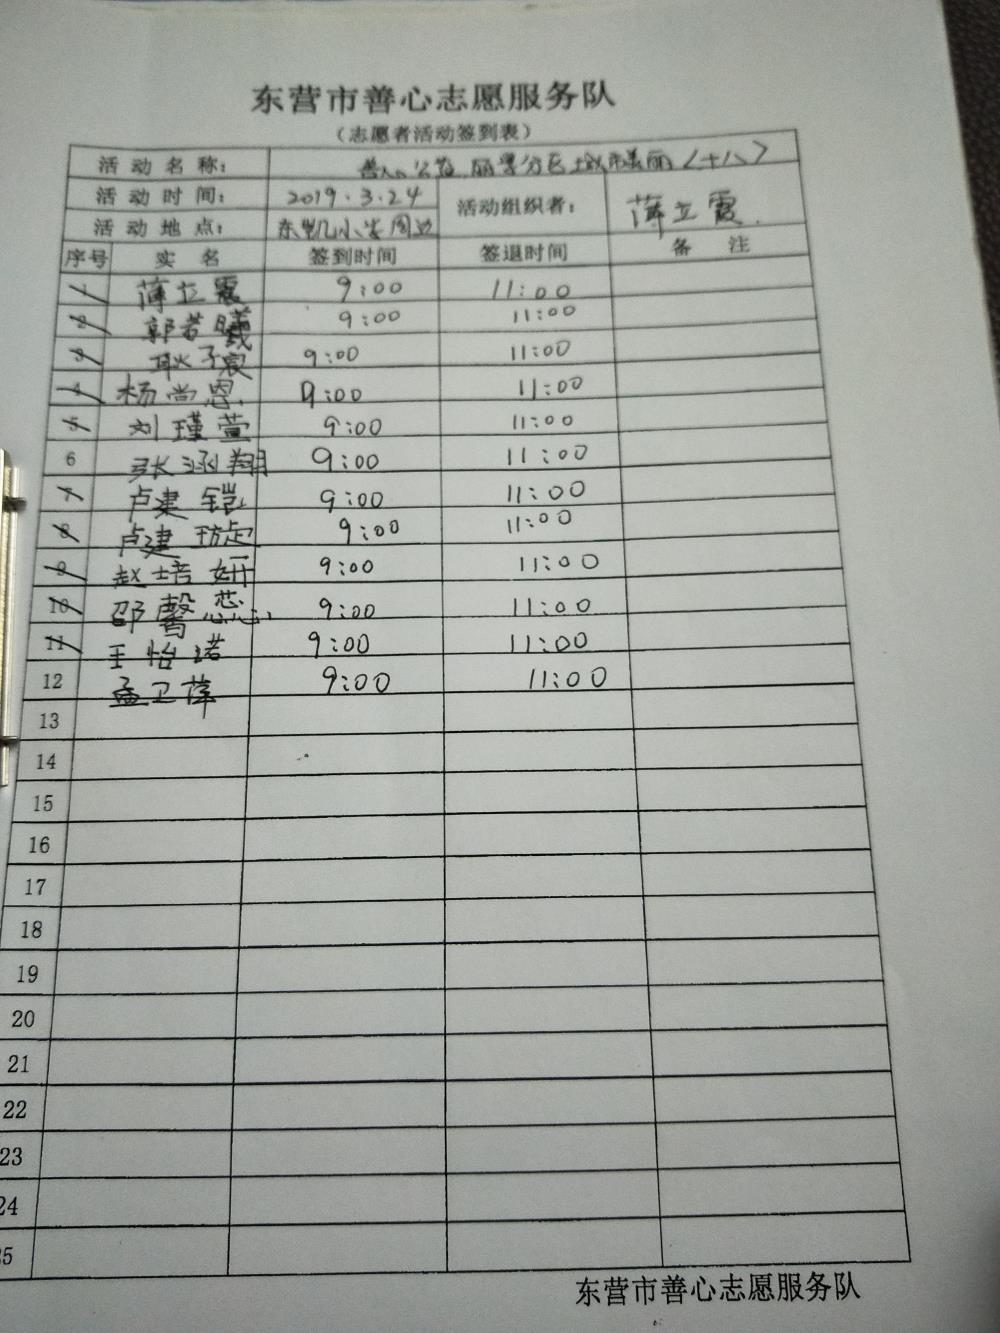 东营市善心志愿服务队
（志愿者活动签到表）
活动名称： 善心公益 丽景分区城市美丽〈十八〉
活动时间： 2019.3.24 活动组织者： 薄立霞
活动地点： 东凯小学周边
序号 实名 签到时间 签退时间 备注
1 薄立霞 9:00 11:00
2 郭若曦 9:00 11:00
3 耿子宸 9:00 11:00
4 杨尚恩 9:00 11:00
5 刘瑾萱 9:00 11:00
6 张涵翔 9:00 11:00
7 卢建铠 9:00 11:00
8 卢建 9:00 11:00
9 赵培妍 9:00 11:00
10 邵馨蕊 9:00 11:00
11 王怡诺 9:00 11:00
12 孟卫萍 9:00 11:00
13
14
15
16
17
18
19
20
21
22
23
24
25
东营市善心志愿服务队